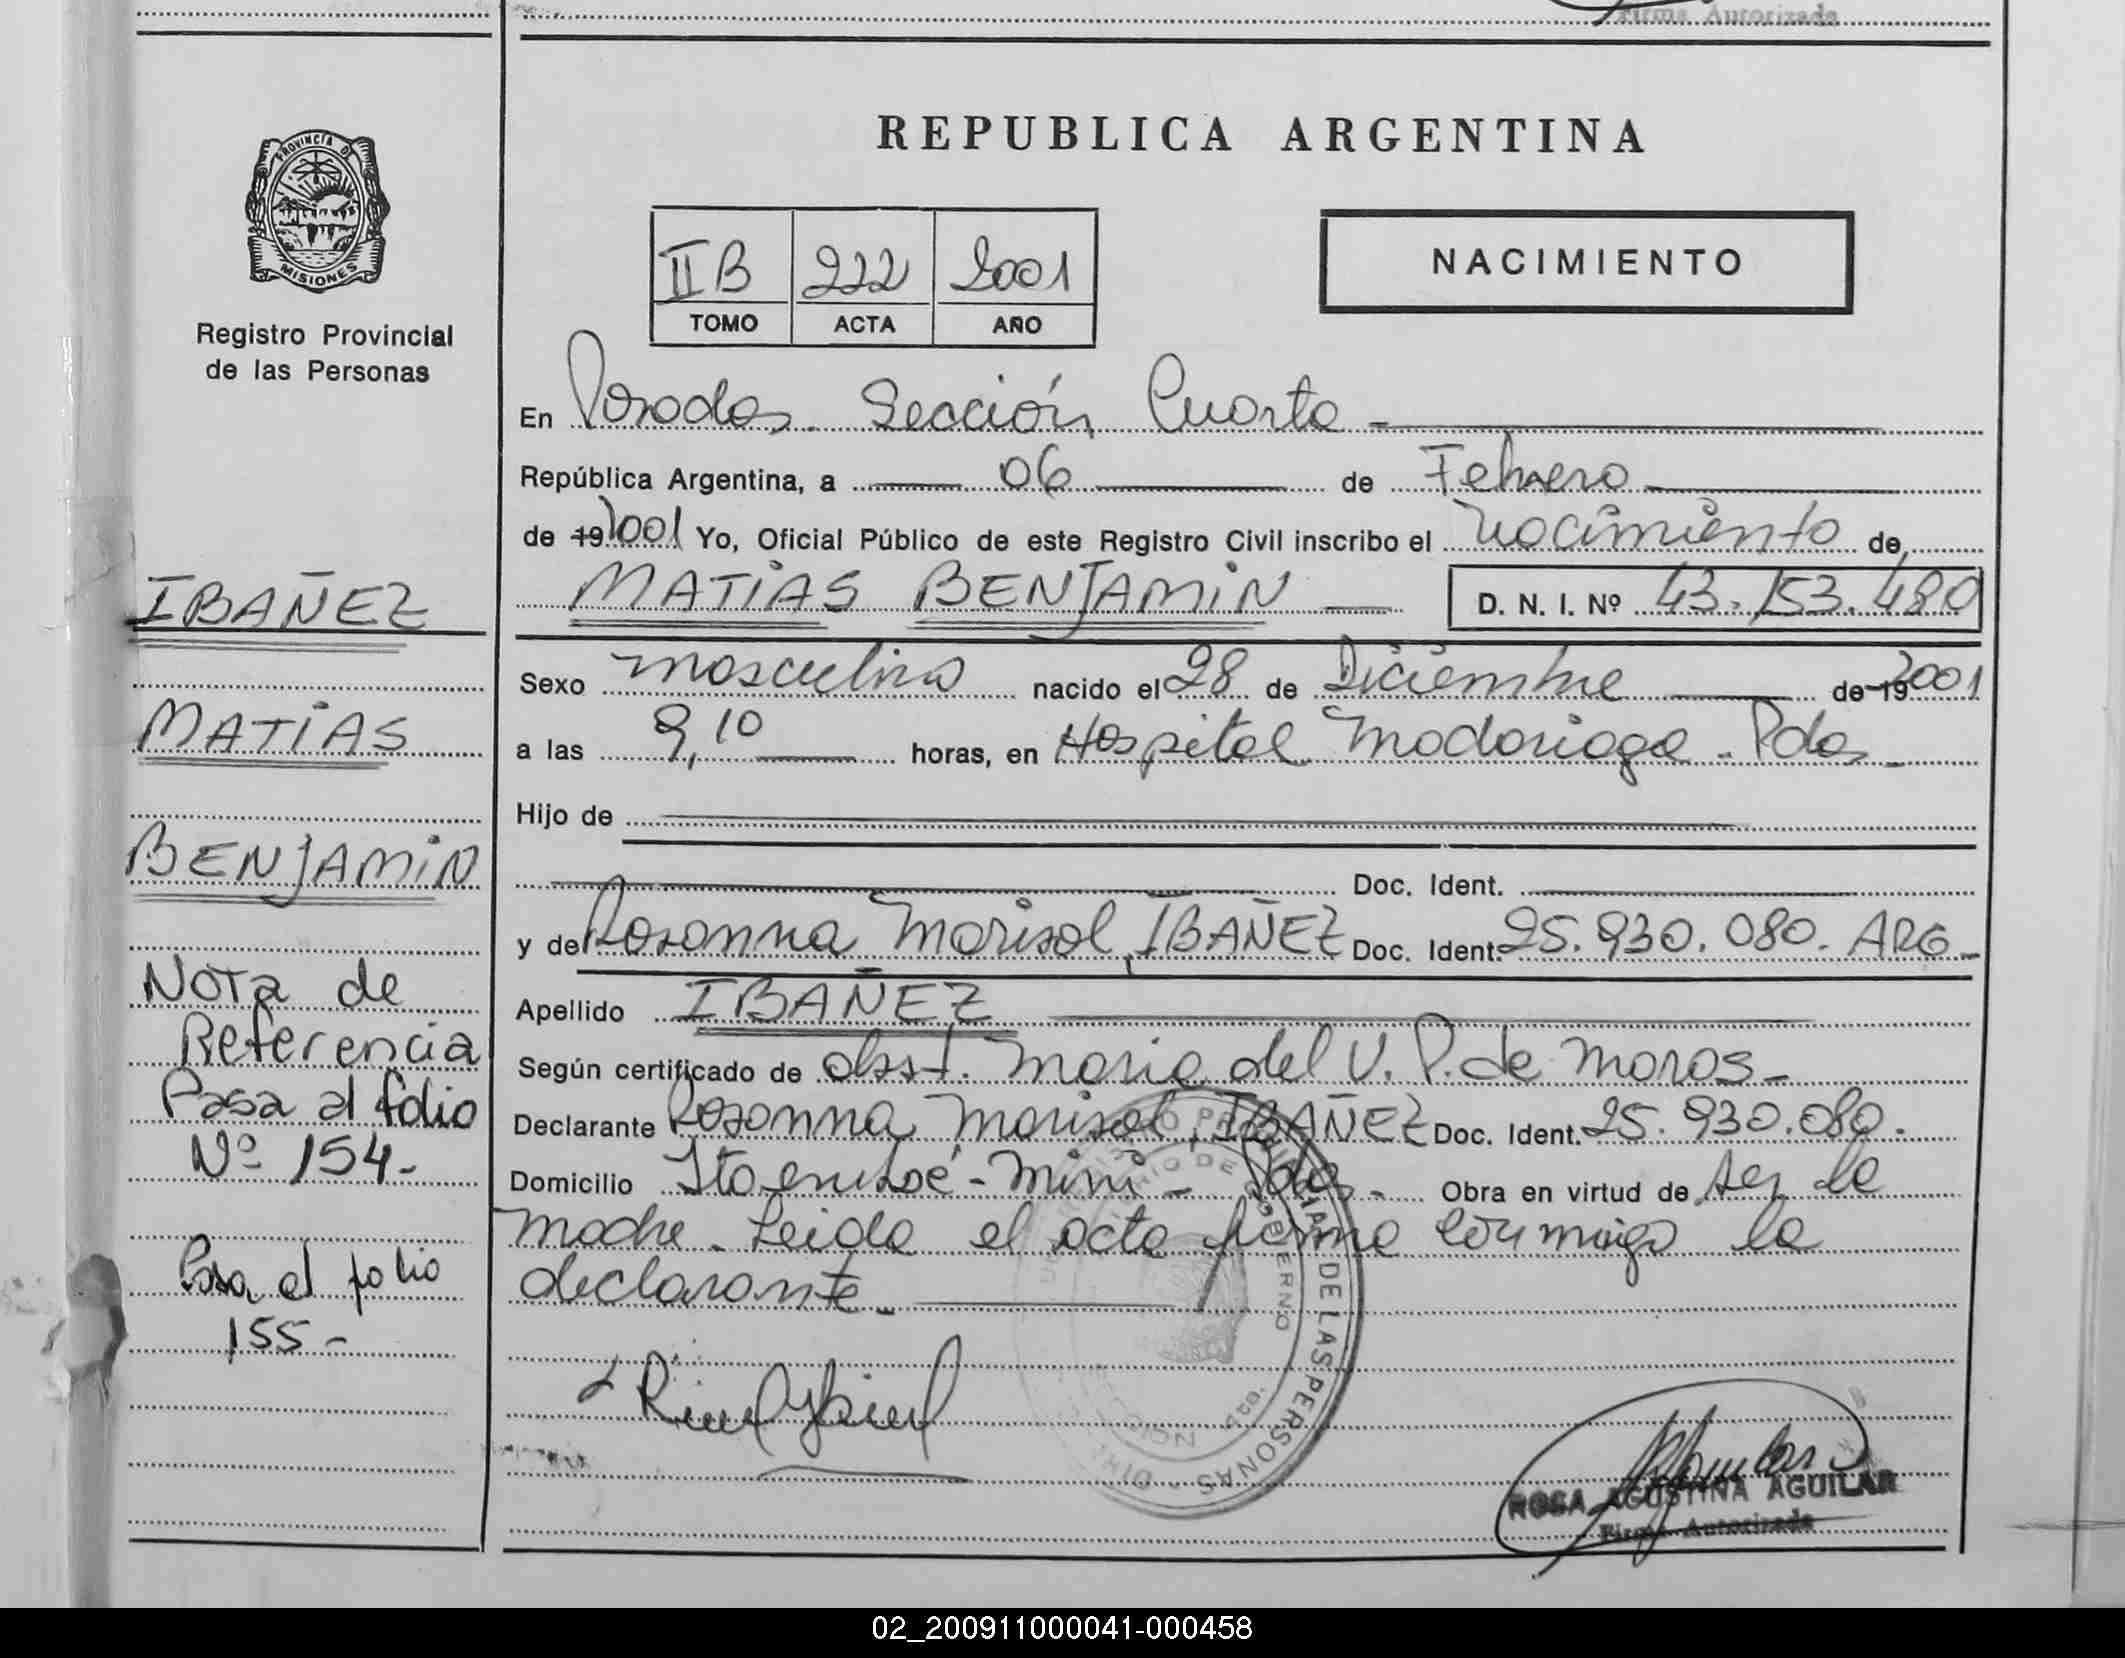 Firma Autorizada
PROVINCIA D
MISIONES
Registro Provincial
de las Personas
IBAÑEZ
MATIAS
BENJAMIN
Nota de
Referencia
Pasa al folio
Nº 154-
Pasa al folio
155-
REPUBLICA ARGENTINA
II B 222 2001
TOMO ACTA AÑO
NACIMIENTO
En Posadas. Sección Cuarta -
República Argentina, a 06 de Febrero
de 19 2001 Yo, Oficial Público de este Registro Civil inscribo el nacimiento de,
MATIAS BENJAMIN D. N. I. Nº 43.153.480
Sexo masculino nacido el 28 de Diciembre de 19 2001
a las 9,10 horas, en Hospital Madariaga - Pdas -
Hijo de
Doc. Ident.
y de Rosanna Marisol, IBAÑEZ Doc. Ident. 25.930.080. ARG -
Apellido IBAÑEZ
Según certificado de obst. Maria del V. P. de Moros -
Declarante Rosanna Marisol, IBAÑEZ Doc. Ident. 25.930.080.
Domicilio Itaembé - Miní - Pdas - Obra en virtud de ser la
madre. Leida el acta firma conmigo la
declarante -
DE LAS PERSONAS
ROSA AGUSTINA AGUILAR
Firma Autorizada
02_200911000041-000458